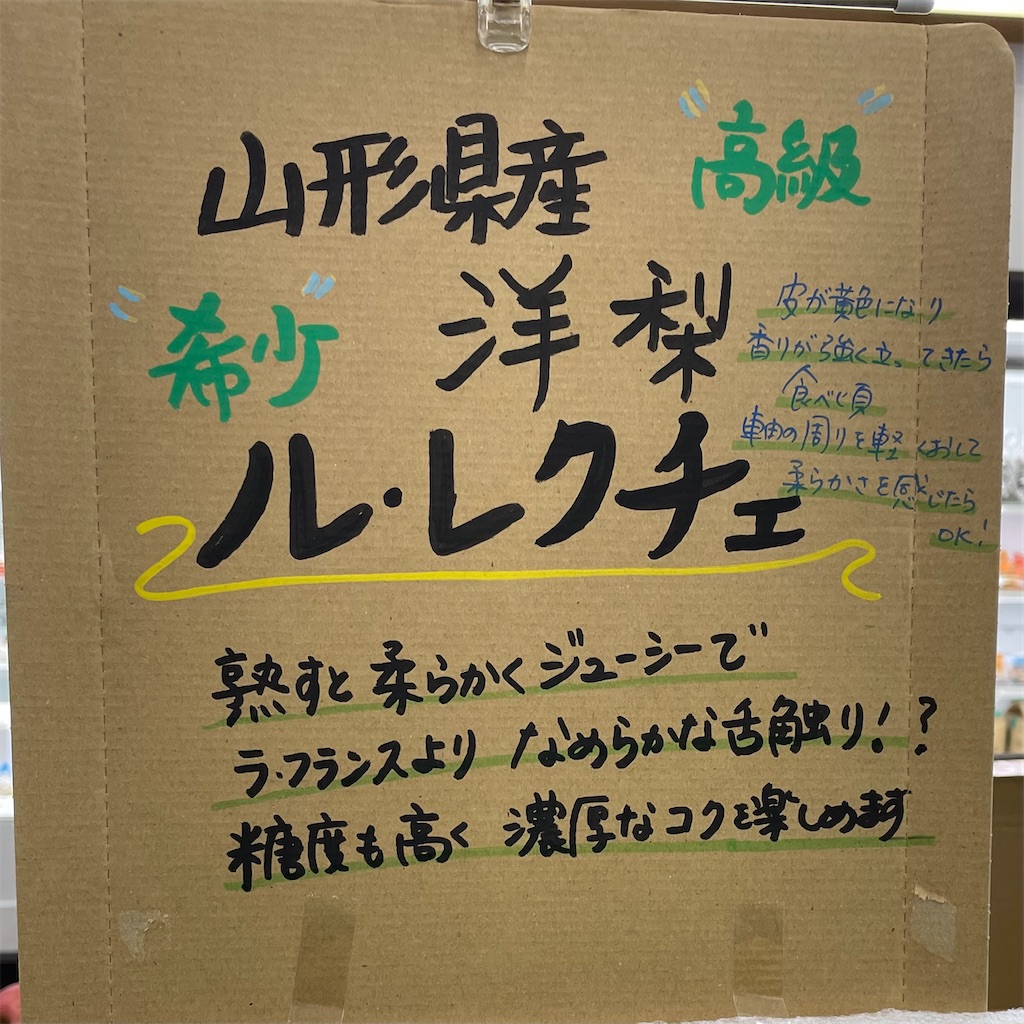 山形県産
"高級"
"希少"
洋梨
ル・レクチェ
皮が黄色になり
香りが強く立ってきたら
食べ頃
軸の周りを軽くおして
柔らかさを感じたら
OK!
熟すと柔らかくジューシーで
ラ・フランスより なめらかな舌触り!?
糖度も高く 濃厚なコクを楽しめます